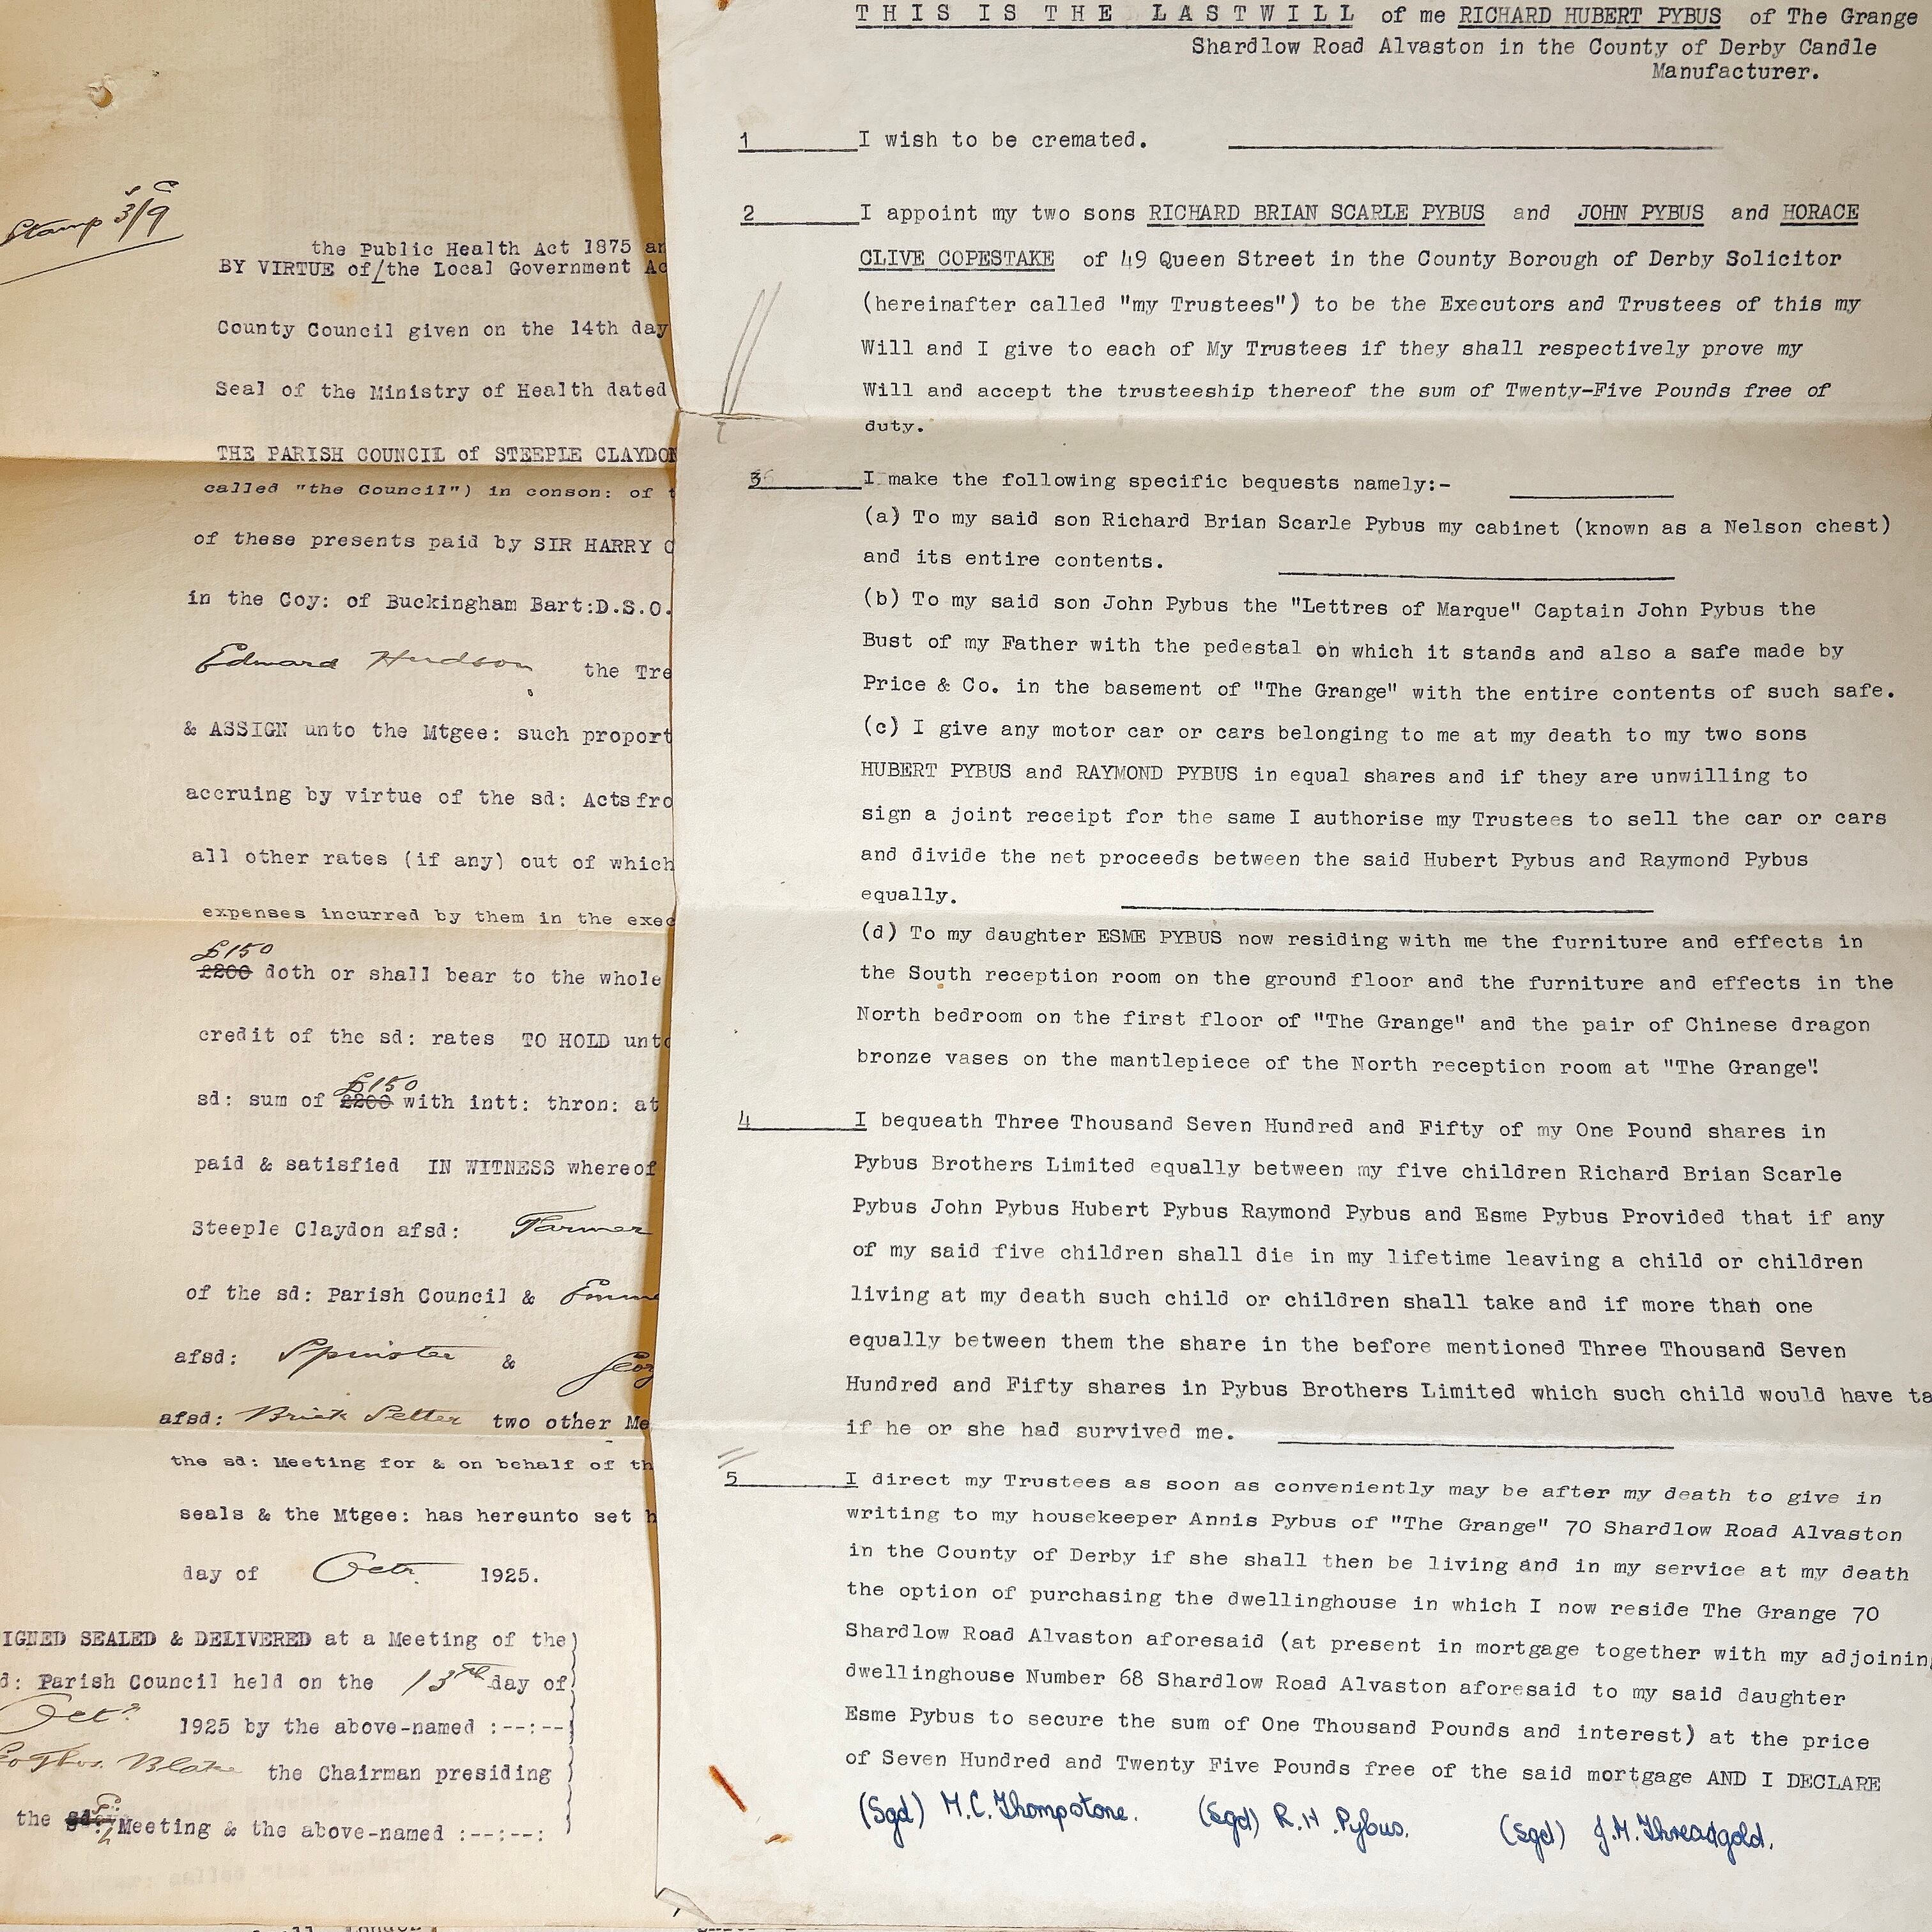 Stamp 3/9
the Public Health Act 1875
BY VIRTUE of/the Local Government
County Council given on the 14th day
Seal of the Ministry of Health dated
THE PARISH COUNCIL of STEEPLE CLAYDON
called "the Council") in conson: of
of these presents paid by SIR HARRY
in the Coy: of Buckingham Bart:D.S.O.
Edward Hudson the
& ASSIGN unto the Mtgee: such
accruing by virtue of the sd: Acts
all other rates (if any) out of which
expenses incurred by them in the
£150
£200 doth or shall bear to the whole
credit of the sd: rates TO HOLD
£150
sd: sum of £200 with intt: thron: at
paid & satisfied IN WITNESS whereof
Steeple Claydon afsd: Farmer
of the sd: Parish Council &
afsd: Spinster &
afsd: Brick Setter two other
the sd: Meeting for & on behalf of
seals & the Mtgee: has hereunto set
day of Octr. 1925.
IGNED SEALED & DELIVERED at a Meeting of the)
d: Parish Council held on the 13th day of
Oct. 1925 by the above-named :--:--
Thos. Blake the Chairman presiding
the Meeting & the above-named :--:--:
THIS IS THE LAST WILL of me RICHARD HUBERT PYBUS of The Grange
Shardlow Road Alvaston in the County of Derby Candle
Manufacturer.
1 I wish to be cremated.
2 I appoint my two sons RICHARD BRIAN SCARLE PYBUS and JOHN PYBUS and HORACE
CLIVE COPESTAKE of 49 Queen Street in the County Borough of Derby Solicitor
(hereinafter called "my Trustees") to be the Executors and Trustees of this my
Will and I give to each of My Trustees if they shall respectively prove my
Will and accept the trusteeship thereof the sum of Twenty-Five Pounds free of
duty.
3 I make the following specific bequests namely:-
(a) To my said son Richard Brian Scarle Pybus my cabinet (known as a Nelson chest)
and its entire contents.
(b) To my said son John Pybus the "Lettres of Marque" Captain John Pybus the
Bust of my Father with the pedestal on which it stands and also a safe made by
Price & Co. in the basement of "The Grange" with the entire contents of such safe.
(c) I give any motor car or cars belonging to me at my death to my two sons
HUBERT PYBUS and RAYMOND PYBUS in equal shares and if they are unwilling to
sign a joint receipt for the same I authorise my Trustees to sell the car or cars
and divide the net proceeds between the said Hubert Pybus and Raymond Pybus
equally.
(d) To my daughter ESME PYBUS now residing with me the furniture and effects in
the South reception room on the ground floor and the furniture and effects in the
North bedroom on the first floor of "The Grange" and the pair of Chinese dragon
bronze vases on the mantlepiece of the North reception room at "The Grange".
4 I bequeath Three Thousand Seven Hundred and Fifty of my One Pound shares in
Pybus Brothers Limited equally between my five children Richard Brian Scarle
Pybus John Pybus Hubert Pybus Raymond Pybus and Esme Pybus Provided that if any
of my said five children shall die in my lifetime leaving a child or children
living at my death such child or children shall take and if more than one
equally between them the share in the before mentioned Three Thousand Seven
Hundred and Fifty shares in Pybus Brothers Limited which such child would have ta
if he or she had survived me.
5 I direct my Trustees as soon as conveniently may be after my death to give in
writing to my housekeeper Annis Pybus of "The Grange" 70 Shardlow Road Alvaston
in the County of Derby if she shall then be living and in my service at my death
the option of purchasing the dwellinghouse in which I now reside The Grange 70
Shardlow Road Alvaston aforesaid (at present in mortgage together with my adjoining
dwellinghouse Number 68 Shardlow Road Alvaston aforesaid to my said daughter
Esme Pybus to secure the sum of One Thousand Pounds and interest) at the price
of Seven Hundred and Twenty Five Pounds free of the said mortgage AND I DECLARE
(Sgd) M.C. Thompstone. (Sgd) R.H. Pybus. (Sgd) J.M. Threadgold.